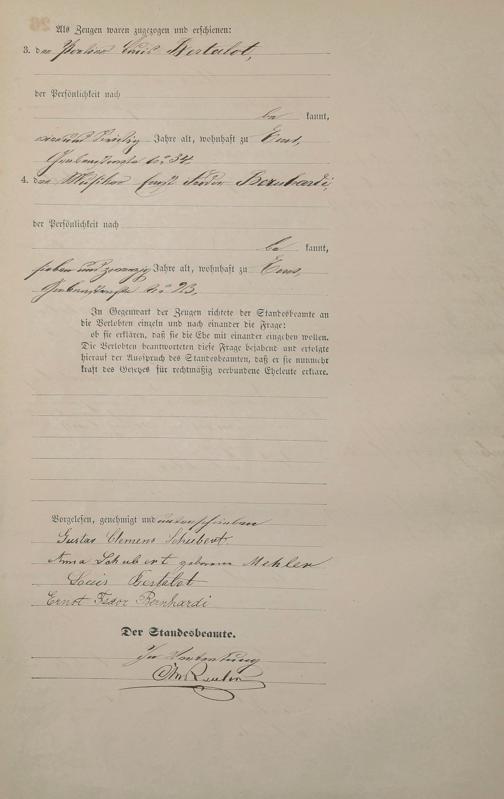 Als Zeugen waren zugezogen und erschienen:
3. der Portier Louis Bertalot,
der Persönlichkeit nach
be kannt,
vierund dreißig Jahre alt, wohnhaft zu Ems,
Grabenstraße No 34
4. der Musiker Ernst Fedor Bernhardi,
der Persönlichkeit nach
be kannt,
sieben und zwanzig Jahre alt, wohnhaft zu Ems,
Grabenstraße No 23.
In Gegenwart der Zeugen richtete der Standesbeamte an
die Verlobten einzeln und nach einander die Frage:
ob sie erklären, daß sie die Ehe mit einander eingehen wollen.
Die Verlobten beantworteten diese Frage bejahend und erfolgte
hierauf der Ausspruch des Standesbeamten, daß er sie nunmehr
kraft des Gesetzes für rechtmäßig verbundene Eheleute erkläre.
Vorgelesen, genehmigt und unterschrieben
Gustav Clemens Schubert.
Anna Schubert geborene Mehler
Louis Bertalot
Ernst Fedor Bernhardi
Der Standesbeamte.
In Vertretung